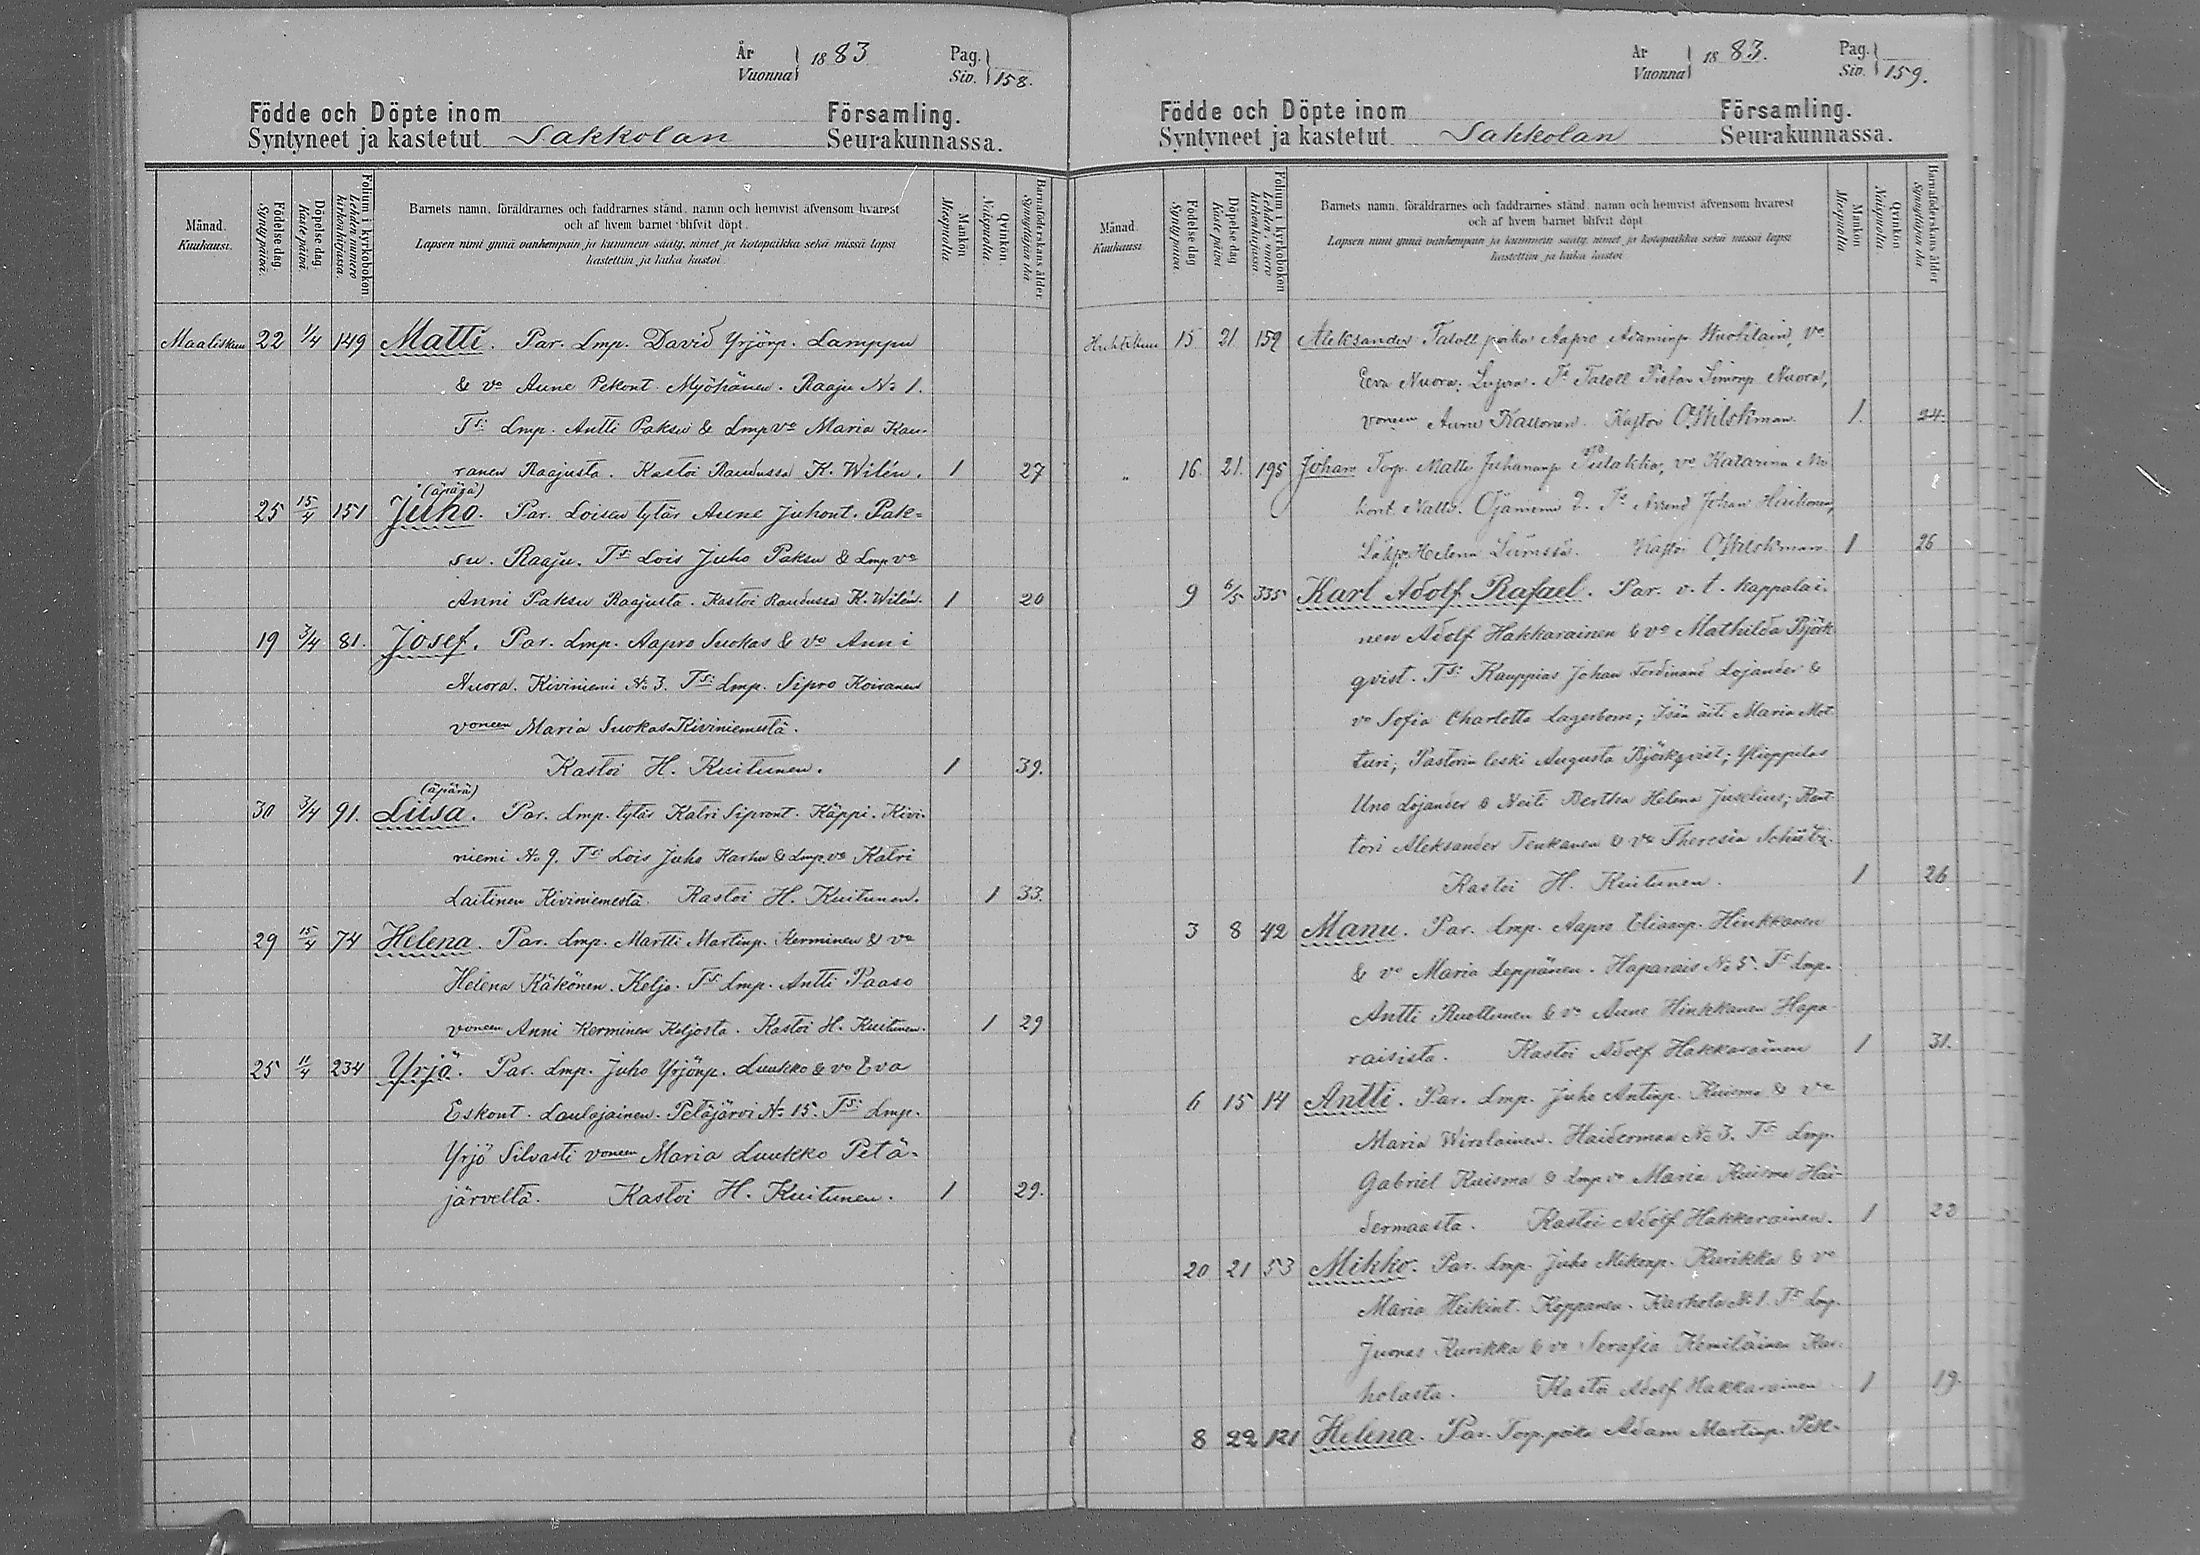 År
Vuonna } 1883
Pag.
Siv. } 158.
Födde och Döpte inom Församling.
Syntyneet ja kastetut Sakkolan Seurakunnassa.
Månad.
Kuukausi.
Födelse dag
Syntypäivä.
Döpelse dag
Kastepäivä.
Folium i kyrkoboken
Lehden numero kirkonkirjassa.
Barnets namn, föräldrarnes och faddrarnes stånd, namn och hemvist äfvensom hvarest
och af hvem barnet blifvit döpt.
Lapsen nimi ynnä vanhempain ja kummein sääty, nimet ja kotopaikka sekä missä lapsi
kastettiin ja kuka kastoi
Mankön
Miespuolia.
Qvinkön
Naispuolia.
Barnaföderskans ålder
Synnyttäjän ikä
Maaliskuu 22 1/4 149 Matti. Par. Lmp. David Yrjönp. Lamppu
& vo Aune Pekont. Myöhänen. Raaju No 1.
Ts: Lmp. Antti Paksu & Lmp vo Maria Kau-
ranen Raajusta. Kastoi Raudussa K. Wilén. 1 27
(äpärä)
25 15/4 151 Juho. Par. Loisen tytär Aune Juhont. Pak-
su. Raaju. Ts: Lois Juho Paksu & Lmp vo
Anni Paksu Raajusta. Kastoi Raudussa K. Wilén. 1 20
19 3/4 81. Josef. Par. Lmp. Aapro Suokas & vo Anni
Nuora. Kiviniemi No 3. Ts: Lmp. Sipro Koivanen
voneen Maria Suokas Kiviniemestä.
Kastoi H. Kuitunen. 1 39.
(äpärä)
30 3/4 91. Liisa. Par. Lmp. tytär Katri Sipront. Käppi. Kivi-
niemi No 9. Ts: Lois Juho Karhu & Lmp. vo Katri
Laitinen Kiviniemestä. Kastoi H. Kuitunen. 1 33.
29 15/4 74 Helena. Par. Lmp. Martti Martinp. Kerminen & vo
Helena Käkönen. Kelja. Ts: Lmp. Antti Paaso
voneen Anni Kerminen Keljosta. Kastoi H. Kuitunen. 1 29
25 11/4 234 Yrjö. Par. Lmp. Juho Yrjönp. Luukko & vo Eva
Eskont. Laulajainen. Petäjärvi No 15. Ts: Lmp.
Yrjö Silvasti voneen Maria Luukko Petä-
järveltä. Kastoi H. Kuitunen. 1 29.
År
Vuonna } 1883.
Pag.
Siv. } 159.
Födde och Döpte inom Församling.
Syntyneet ja kastetut Sakkolan Seurakunnassa.
Månad.
Kuukausi.
Födelse dag
Syntypäivä.
Döpelse dag
Kastepäivä
Folium i kyrkoboken
Lehden numero kirkonkirjassa.
Barnets namn, föräldrarnes och faddrarnes stånd, namn och hemvist äfvensom hvarest
och af hvem barnet blifvit döpt.
Lapsen nimi ynnä vanhempain ja kummein sääty, nimet ja kotopaikka sekä missä lapsi
kastettiin ja kuka kastoi
Mankön
Miespuolia.
Qvinkön
Naispuolia.
Barnaföderskans ålder
Synnyttäjän ikä
Huhtikuu 15 21 159 Aleksander Taloll. poika Aapro Adaminp. vo
Eeva Nuora; Ts Taloll Simonp Nuora,
voneen Aune Kastoi 1. 24.
" 16. 21. 195 Johan Torp. Matti Juhananp vo Katarina
hont. Ojaniemi 2. Ts Johan
Helena Kastoi 1 26
9 6/5 335 Karl Adolf Rafael. Par. v. t. kappalai-
nen Adolf Hakkarainen & vo Mathilda Björk-
qvist. Ts: Kauppias Johan Ferdinand Lojander &
vo Sofia Charlotta Lagerbom; Isän äiti Maria Mot-
turi; Pastorin leski Augusta Björkqvist; Ylioppilas
Uno Lojander & Neiti Bertha Helena Juselius; Kant-
tori Aleksander Tenkanen & vo Theresia Schütz.
Kastoi H. Kuitunen. 1 26
3 8 42 Manu. Par. Lmp. Aapro Eliaanp. Hinkkanen
& vo Maria Leppänen. Haparais No 5. Ts Lmp.
Antti Ruottunen & vo Aune Hinkkanen Hapa-
raisista. Kastoi Adolf Hakkarainen 1 31.
6 15 14 Antti. Par. Lmp. Juho Antinp. Kuisma & vo
Maria Wirolainen. Haidermaa No 3. Ts Lmp.
Gabriel Kuisma & Lmp vo Maria Kuisma Hai-
dermaasta. Kastoi Adolf Hakkarainen. 1 22
20 21 53 Mikko. Par. Lmp. Juho Mikonp. Kurikka & vo
Maria Heikint. Koppanen. Karhola No 1. Ts Lmp.
Juonas Kurikka & vo Serafia Kemiläinen Kar-
holasta. Kastoi Adolf Hakkarainen 1 19.
8 22 121 Helena. Par. Torp. poika Adam Martinp.